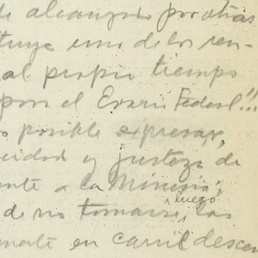 de alcanzar por otras
tuye uno de los ren-
al propio tiempo
por el Erario Federal!!
posible expresar,
cidad y justeza de
ente a la Minería;
de no tomarse, luego las
mente en carril descen